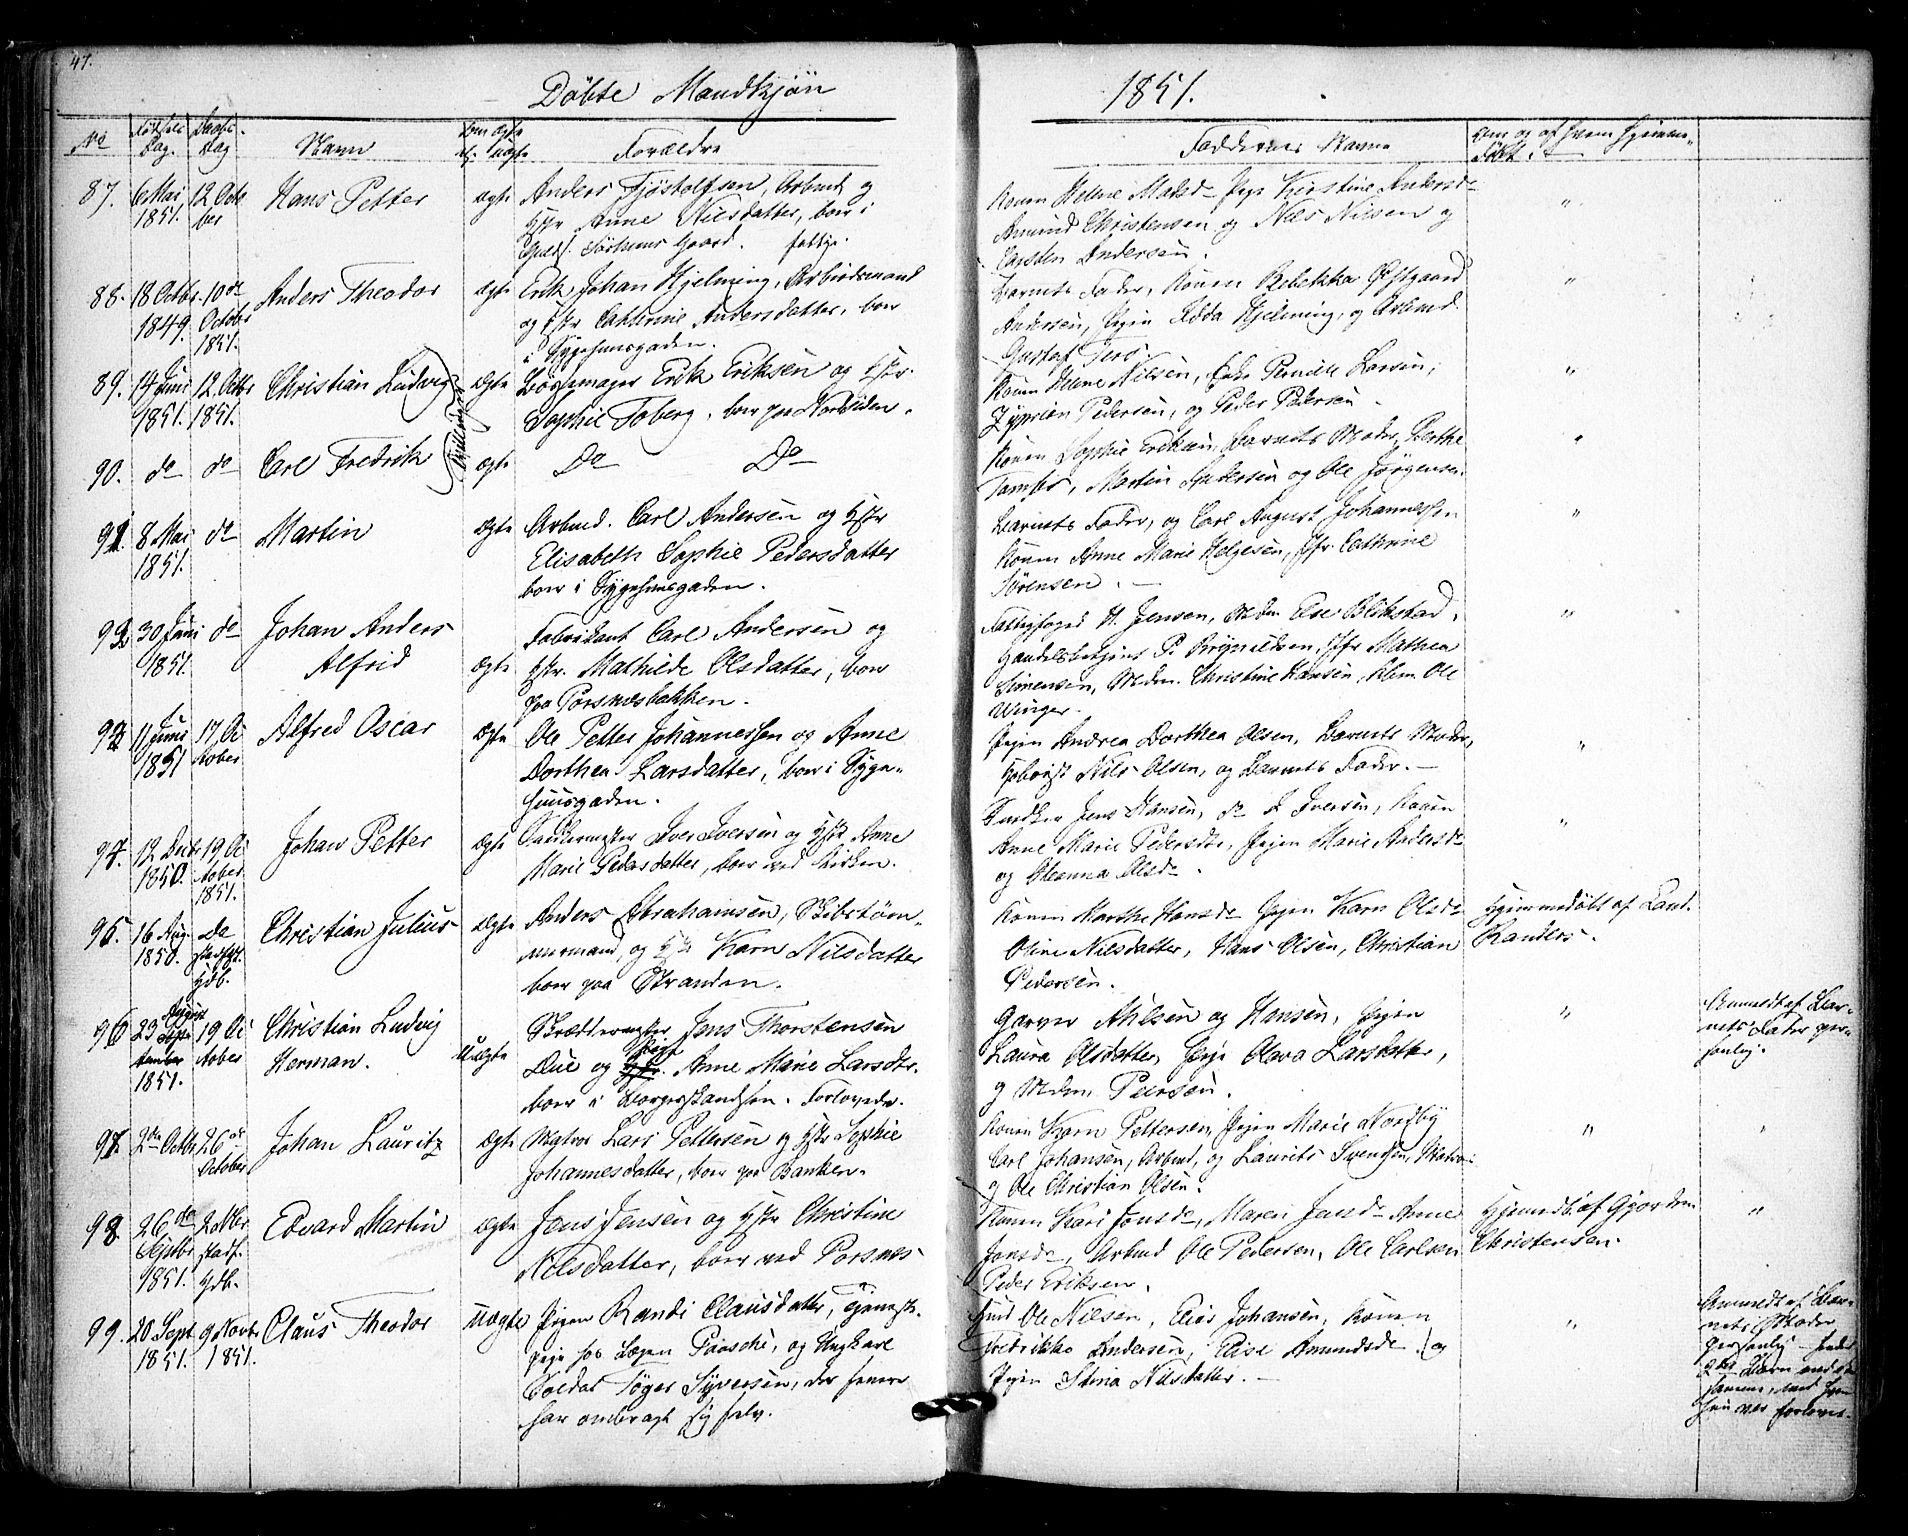 47.
Döbte Mandkjön 1851.
No Födsels Dag. Daabs Dag Navn Om ægte el. uægte Forældre Faddernes Navne Om og af hvem hjemmedöbt
87. 6 Mai 1851. 12 October Hans Petter ægte Anders Fjöstolfsen, Arbmd og
Hstr Anne Nilsdatter, boer i
Gaard. fattige.
Konen Helene Madsdr Pige Kirstine Andersdr
Amund Christensen og Niels Nilsen og
Carsten Andersen.
88. 18 Octbr. 1849. 10de Octobr 1851. Anders Theodor ægte Erik Johan Hjelming, Arbeidsmand
og Hstr Cathrine Andersdatter, boer
i Sygehuusgaden.
Barnets Fader, Konen Rebekka Östgaard
Andersen, Pigen Edda Hjelming, og Arbmd.
Gustaf
89. 14 Juni 1851. 12 Octbr 1851. Christian Ludvig ægte Erik Eriksen og Hstr.
Sophie Toberg. boer paa Nordsiden.
Konen Helene Nilsen, Enke Pernille Larsen,
Zyprian Pedersen, og Peder Pedersen.
(Tvillinger)
90. do do Carl Fredrik ægte Do Do
Konen Sophie Eriksen, Barnets Moder, Berthe
Martin Andersen og Ole Jörgensen
91. 8 Mai 1851. do Martin ægte Arbmd. Carl Andersen og Hstr
Elisabeth Sophie Pedersdatter
boer i Sygehuusgaden.
Barnets Fader, og Carl August Johannessen
Konen Anne Marie Helgesen, Jfr. Cathrine
Sörensen.
92. 30 Juni 1851. do Johan Anders
Alfrid ægte Fabrikant Carl Andersen og
Hstr. Mathilde Olsdatter, boer
paa Porsnesbakken.
Fattigfoged H. Jensen, Mdm Else Blikstad,
Handelsbetjent P. Brynildsen, Jfr Mathea
Simensen, Mdm. Christine Hansen, Ole
Winger.
93. 11 Juni 1851 17 October Alfred Oscar ægte Ole Petter Johannessen og Anne
Dorthea Larsdatter, boer i Syge-
huusgaden.
Pigen Andrea Dorthea Olsen, Barnets Moder,
Nils Olsen, og Barnets Fader.
94. 12 Decbr 1850. 19 October 1851. Johan Petter ægte Iver Iversen og Hstr Anne
Marie Pedersdatter, boer ved Kirken.
Snedker Jens Hansen, do I Iversen, Konen
Anne Marie Pedersdr, Pigen Marie Andersdr
og Oleanna Olsdr.
95. 16 Aug. 1850. Do stadf. hdb. Christian Julius ægte Anders Abrahamsen, Skibstöm-
mermand, og Hstr Karn Nilsdatter
boer paa Stranden.
Konen Marthe Hansdr Pigen Karn Olsdr
Oline Nilsdatter, Hans Olsen, Christian
Pedersen.
Hjemmedöbt af Land.
Randers.
96 23 August September 1851. 19 October Christian Ludvig
Herman. Uægte Skræddermester Jens Thorstensen
Due og Pige Anne Marie Larsdtr.
boer i Borgerskandsen. Forlovede.
Garver Ahlsen og Hansen, Pigen
Laura Olsdatter, Pige Olava Larsdatter,
og Mdm. Peersen.
Anmeldt af Bar-
nets Fader per-
sonlig.
97. 2den Octbr 26de October Johan Lauritz ægte Lars Pettersen og Hstr Sophie
Johannesdatter, boer paa Banken.
Konen Karn Pettersen, Pigen Marie Nordby
Carl Johansen, Arbmd, og Laurits Svendsen, Matros
og Ole Christian Olsen.
98. 26de Septbr 1851. 2 Novbr stadf. hdb. Edvard Martin ægte Jens Jensen og Hstr Christine
Nilsdatter, boer ved Porsnes-
Konen Kari Jonsdr, Maren Jensdr Anne
Jonsdr, Arbmd Ole Pedersen, Ole Carlsen
Peder Eriksen.
Hjemmedöbt af Gjordem.
Christensen.
99. 20 Sept. 1851. 9 Novbr. 1851. Claus Theodor Uægte Pigen Randi Clausdatter, Tjeneste-
pige hos Lægen Paasche, og Ungkarl
Soldat Töger Syversen, der senere
har ombragt sig selv.
Ole Nilsen, Elias Johansen, Konen
Fredrikke Andersen, Elise Amundsdr og
Pigen Stina Nilsdatter.
Anmeldt af Bar-
nets Moder
personlig
2det Barn med
samme, med hvem
hun var forlovet.